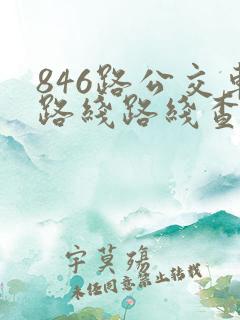 846路公交车
路线路线查
宇莫殇
未经同意禁止转载